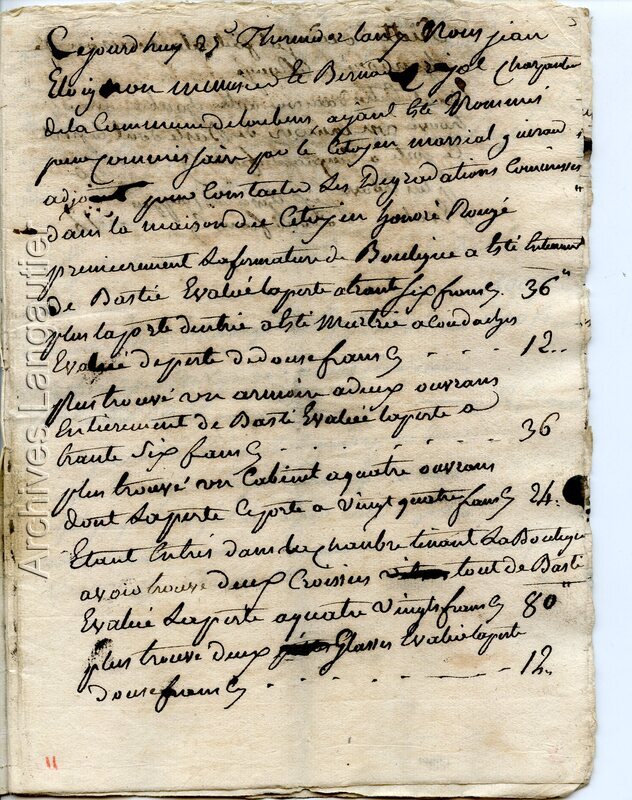 Cejourdhuy 25 Thermidor lan 7 Nous jean
Eloy menuisier et Bernard Rigal Charpentier
de la Commune de loubens ayant Esté Nommés
pour Commissaire par le Citoyen marsial guiraud
adjoint pour Constater Les Degradations Commisses
dans la maison du Citoyen honoré Rougé
premierement La fermature de Boutique a Esté Entierement
de Basté Evalué laperte atrante six francs 36"
plus laporte dentrée a Esté Murtrié a Coudaches
Evalué deperte de douse francs 12
plus trouvé un armoire adeux ouvrans
Entierement de Basté Evaliée laperte a
trante Six francs 36
plus trouvé un Cabinet aquatre ouvrans
dont Laperte Ceporte a Vingt quatre francs 24
Etant Entrés dans du Chambre tenant La Boutique
avoir trouvé deux Croisies tout de Basté
Evalué Laperte aquatre Vingts francs 80"
plus trouvé deux Glasses Evalué laperte
douse francs 12
11
Archives Langautier